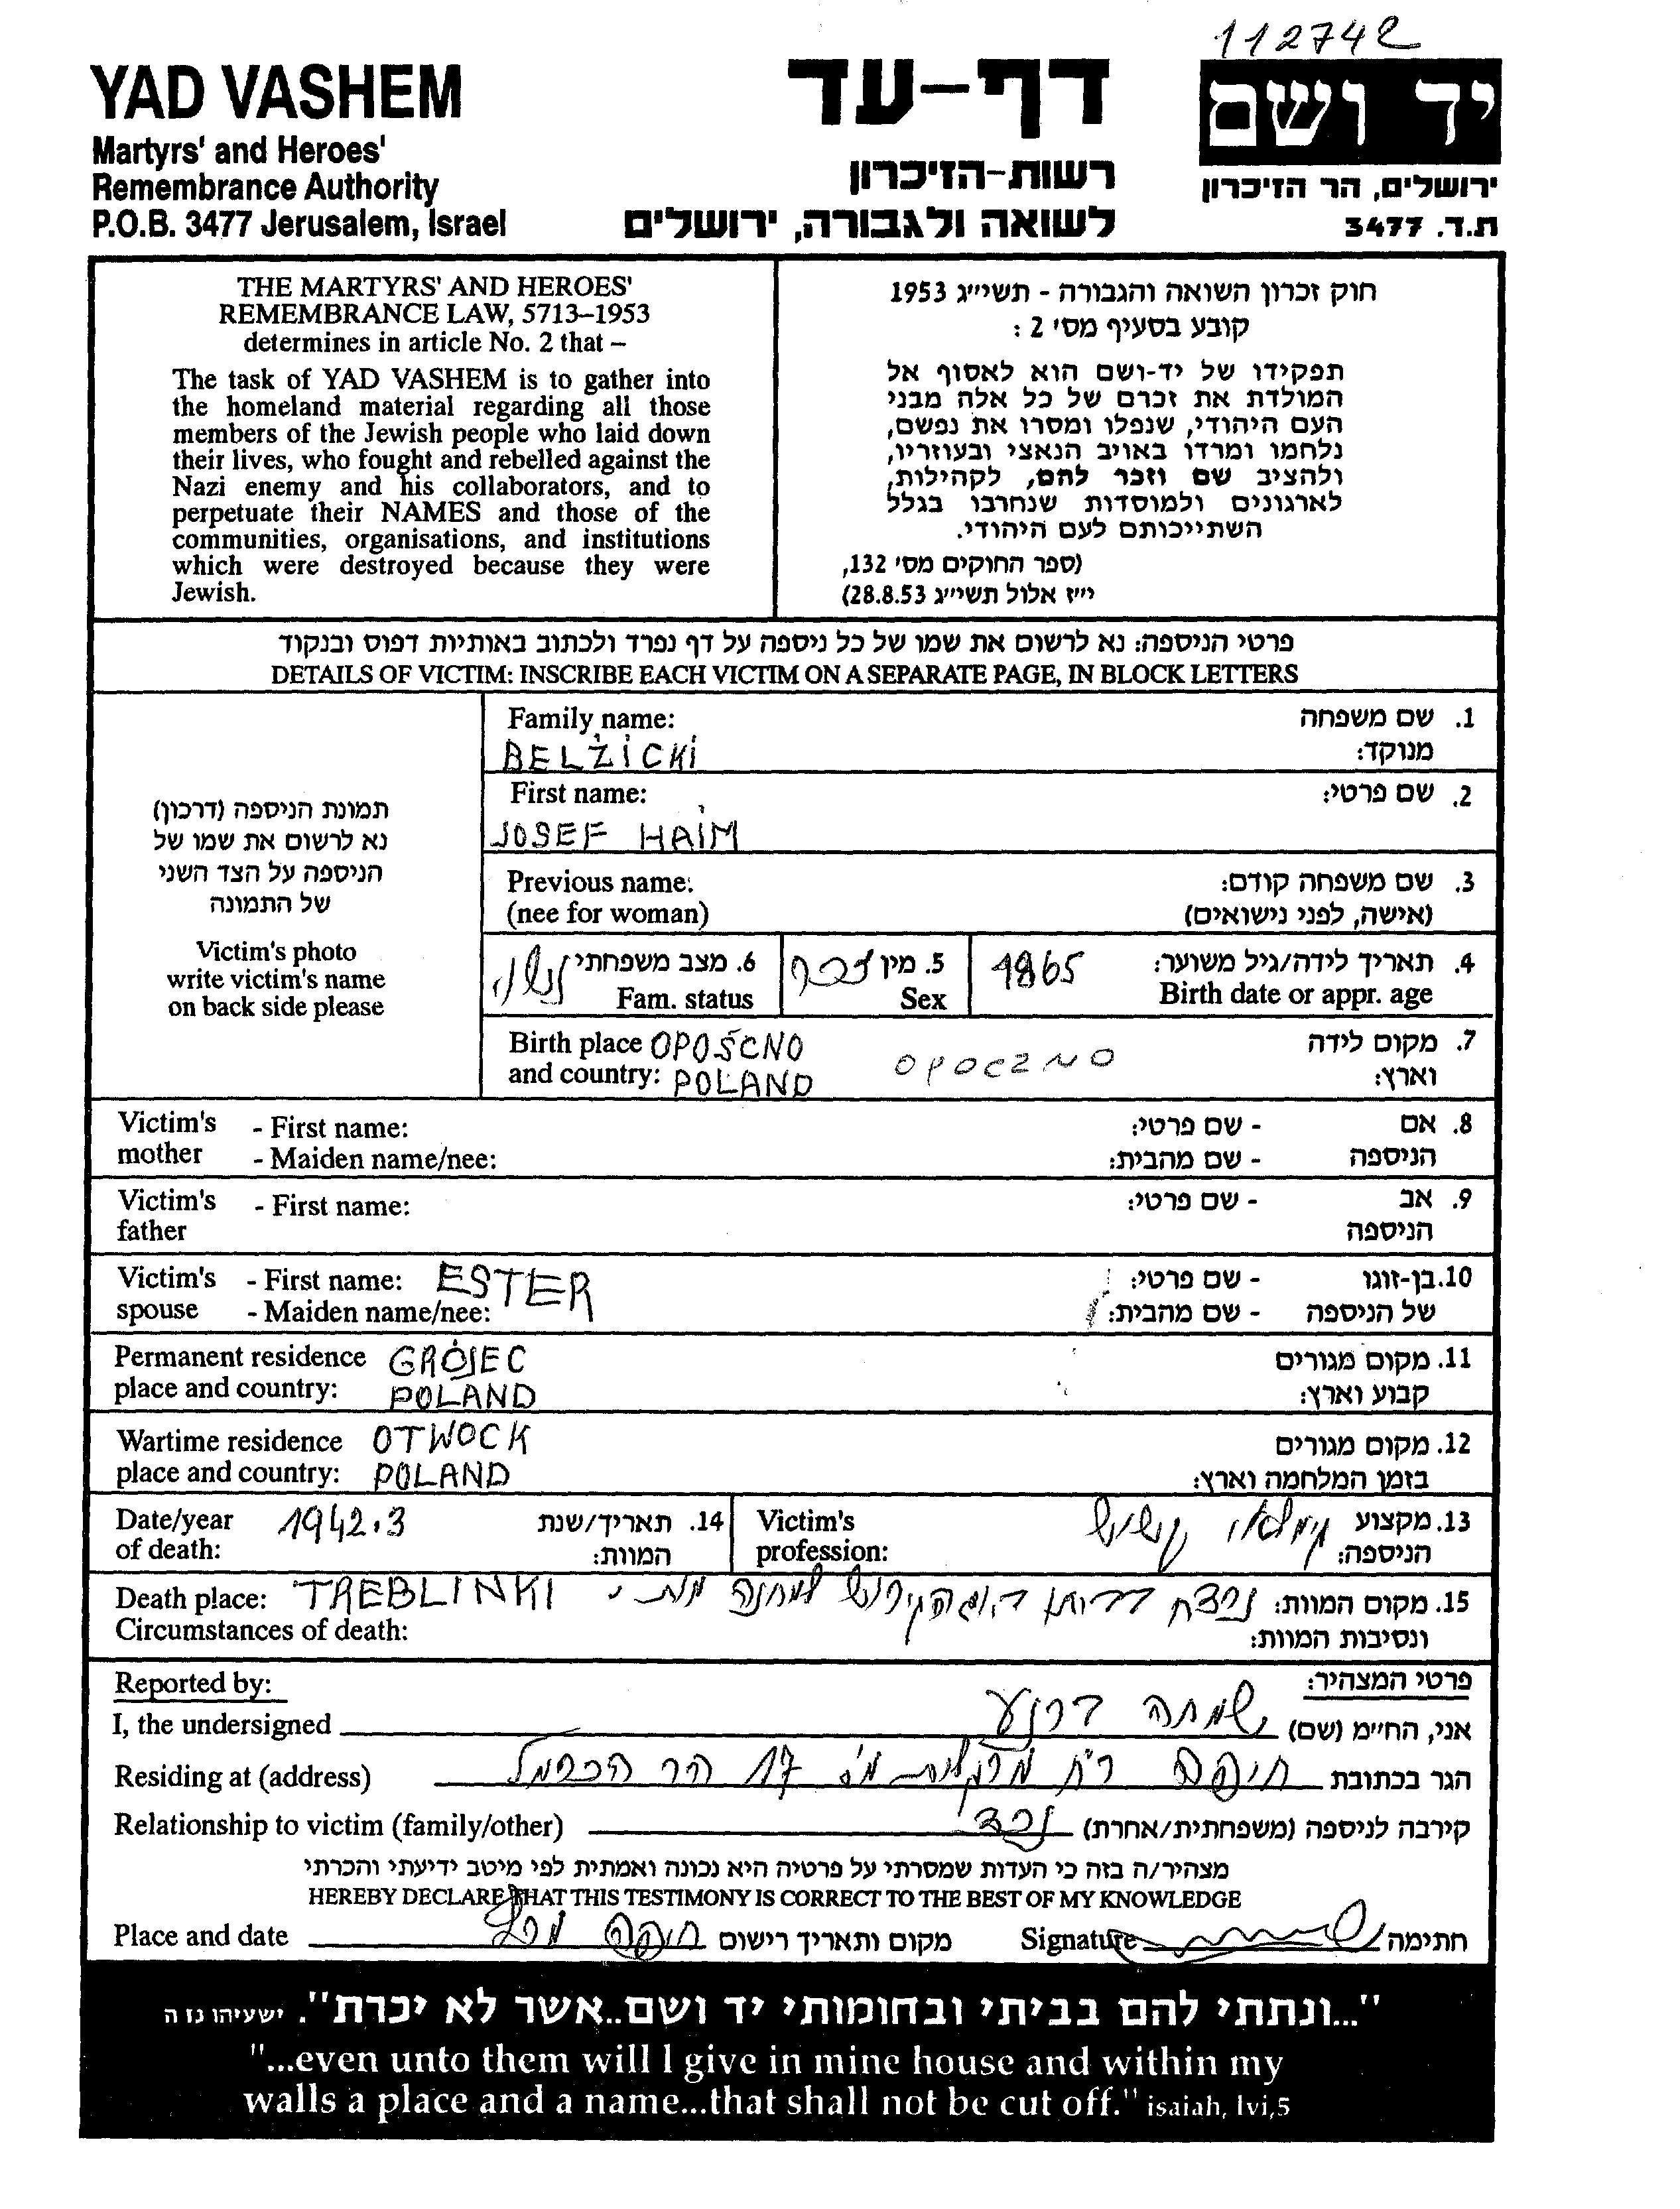 112742
YAD VASHEM
Martyrs' and Heroes'
Remembrance Authority
P.O.B. 3477 Jerusalem, Israel
דף-עד
רשות-הזיכרון
לשואה ולגבורה, ירושלים
יד ושם
ירושלים, הר הזיכרון
ת.ד. 3477
THE MARTYRS' AND HEROES'
REMEMBRANCE LAW, 5713–1953
determines in article No. 2 that –
The task of YAD VASHEM is to gather into
the homeland material regarding all those
members of the Jewish people who laid down
their lives, who fought and rebelled against the
Nazi enemy and his collaborators, and to
perpetuate their NAMES and those of the
communities, organisations, and institutions
which were destroyed because they were
Jewish.
חוק זכרון השואה והגבורה - תשי״ג 1953
קובע בסעיף מס׳ 2 :
תפקידו של יד-ושם הוא לאסוף אל
המולדת את זכרם של כל אלה מבני
העם היהודי, שנפלו ומסרו את נפשם,
נלחמו ומרדו באויב הנאצי ובעוזריו,
ולהציב שם וזכר להם, לקהילות,
לארגונים ולמוסדות שנחרבו בגלל
השתייכותם לעם היהודי.
(ספר החוקים מס׳ 132,
י״ז אלול תשי״ג 28.8.53)
פרטי הניספה: נא לרשום את שמו של כל ניספה על דף נפרד ולכתוב באותיות דפוס ובנקוד
DETAILS OF VICTIM: INSCRIBE EACH VICTIM ON A SEPARATE PAGE, IN BLOCK LETTERS
תמונת הניספה (דרכון)
נא לרשום את שמו של
הניספה על הצד השני
של התמונה
Victim's photo
write victim's name
on back side please
Family name: 1. שם משפחה
BELŻICKI מנוקד:
First name: 2. שם פרטי:
JOSEF HAIM
Previous name: 3. שם משפחה קודם:
(nee for woman) (אישה, לפני נישואים)
4. תאריך לידה/גיל משוער: 1865
Birth date or appr. age
5. מין זכר
Sex
6. מצב משפחתי נשוי
Fam. status
Birth place OPOŚCNO OPOCZNO 7. מקום לידה
and country: POLAND וארץ:
Victim's - First name: - שם פרטי: 8. אם
mother - Maiden name/nee: - שם מהבית: הניספה
Victim's - First name: - שם פרטי: 9. אב
father הניספה
Victim's - First name: ESTER - שם פרטי: 10. בן-זוגו
spouse - Maiden name/nee: - שם מהבית: של הניספה
Permanent residence GRÓJEC 11. מקום מגורים
place and country: POLAND קבוע וארץ:
Wartime residence OTWOCK 12. מקום מגורים
place and country: POLAND בזמן המלחמה וארץ:
Date/year 1942.3 14. תאריך/שנת
of death: המוות:
Victim's 13. מקצוע
profession: הניספה:
Death place: TREBLINKI נרצח 15. מקום המוות:
Circumstances of death: ונסיבות המוות:
Reported by: פרטי המצהיר:
I, the undersigned שמחה אני, החי״מ (שם)
Residing at (address) חיפה 17 הר הכרמל הגר בכתובת
Relationship to victim (family/other) נכד קירבה לניספה (משפחתית/אחרת)
מצהיר/ה בזה כי העדות שמסרתי על פרטיה היא נכונה ואמתית לפי מיטב ידיעתי והכרתי
HEREBY DECLARE THAT THIS TESTIMONY IS CORRECT TO THE BEST OF MY KNOWLEDGE
Place and date חיפה מקום ותאריך רישום Signature חתימה
"...ונתתי להם בביתי ובחומותי יד ושם..אשר לא יכרת". ישעיהו נו ה
"...even unto them will I give in mine house and within my
walls a place and a name...that shall not be cut off." isaiah, lvi,5